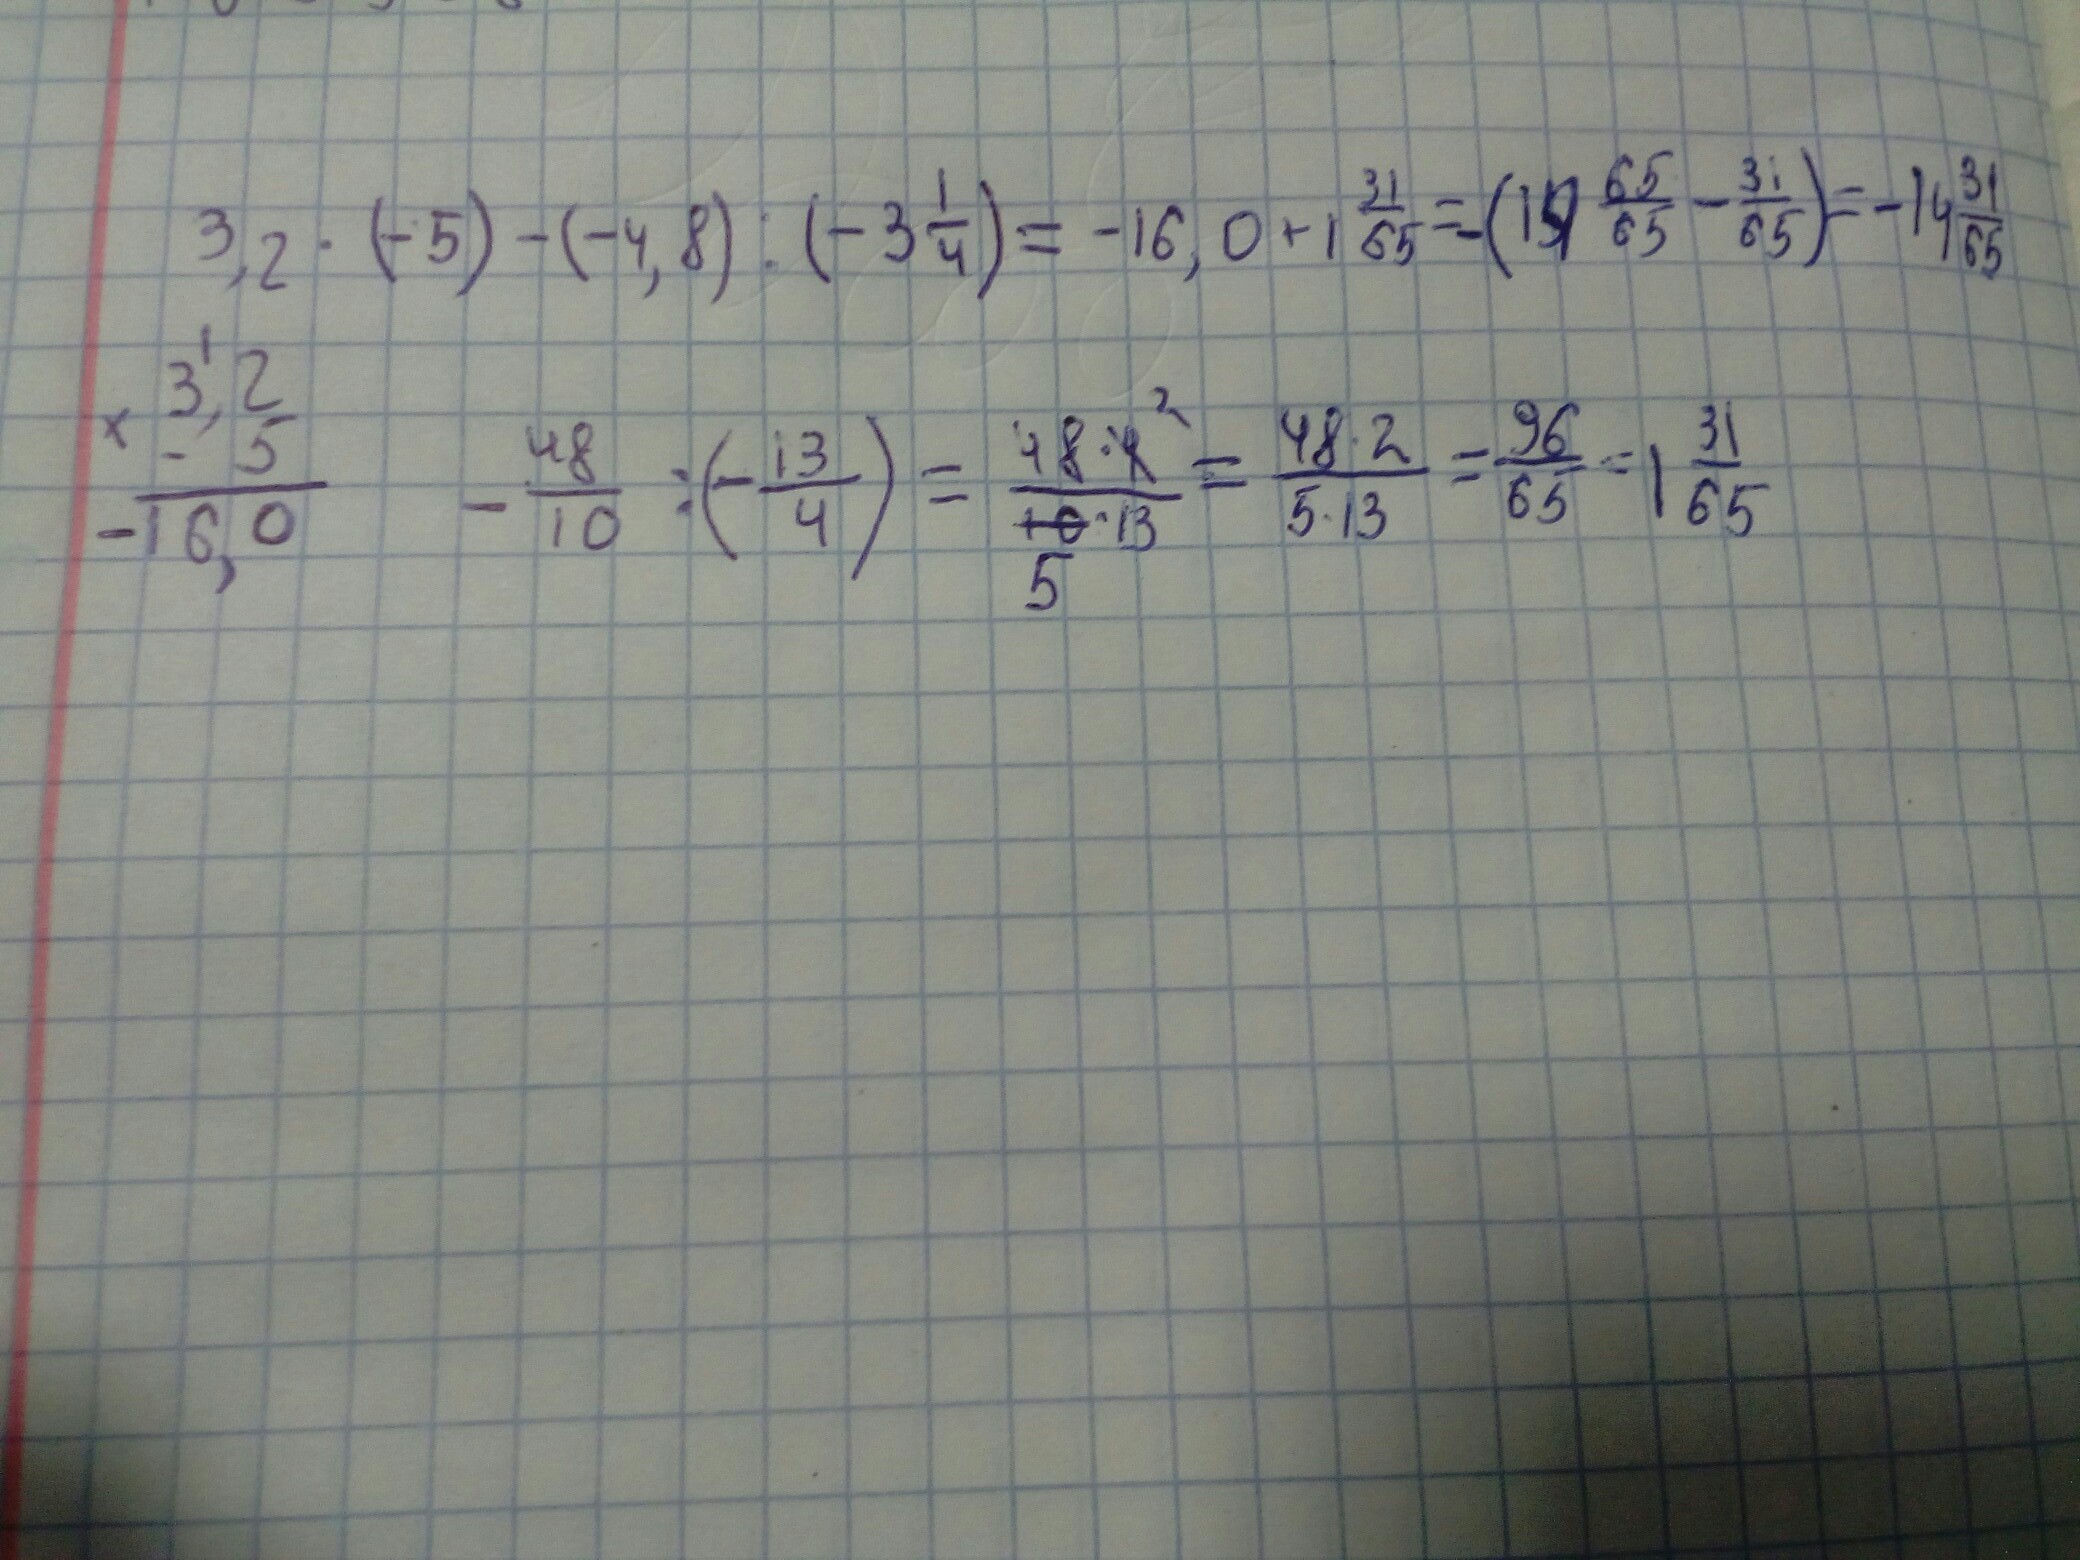 3,2 · (-5) - (-4,8) : (-3 1/4) = -16,0 + 1 31/65 = -(15 65/65 - 31/65) = -14 31/65
3,2
× -5
-16,0
- 48/10 : (- 13/4) = 48·4/10·13 = 48·2/5·13 = 96/65 = 1 31/65
2
5